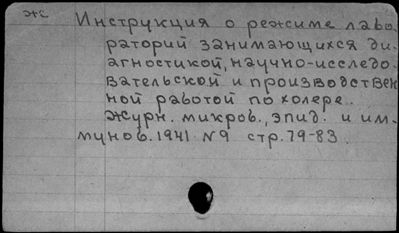 жс
Инструкция о режиме лабо-
раторий занимающихся ди-
агностикой, научно-исследо-
вательской и производствен
ной работой по холере.
Журн. микроб., эпид. и им-
мунов. 1941 №9 стр. 79-83.